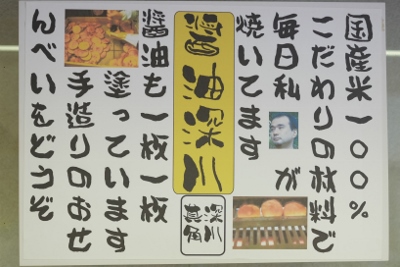 国産米一〇〇%
こだわりの材料で
毎日私が
焼いてます
醤油深川
深川
真角
醤油も一枚一枚
塗っています
手造りのおせ
んべいをどうぞ